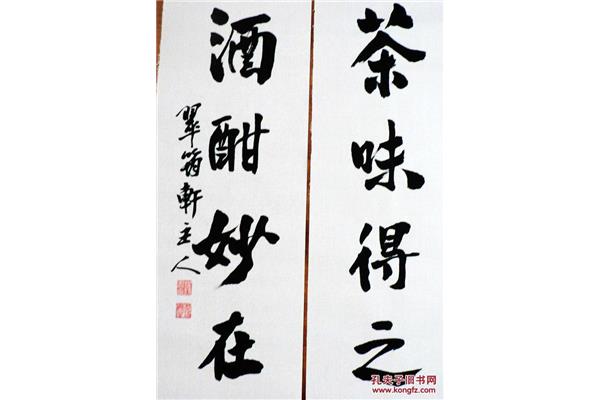 茶味得之
酒酣妙在
翠筠軒主人
孔夫子旧书网
www.kongfz.com